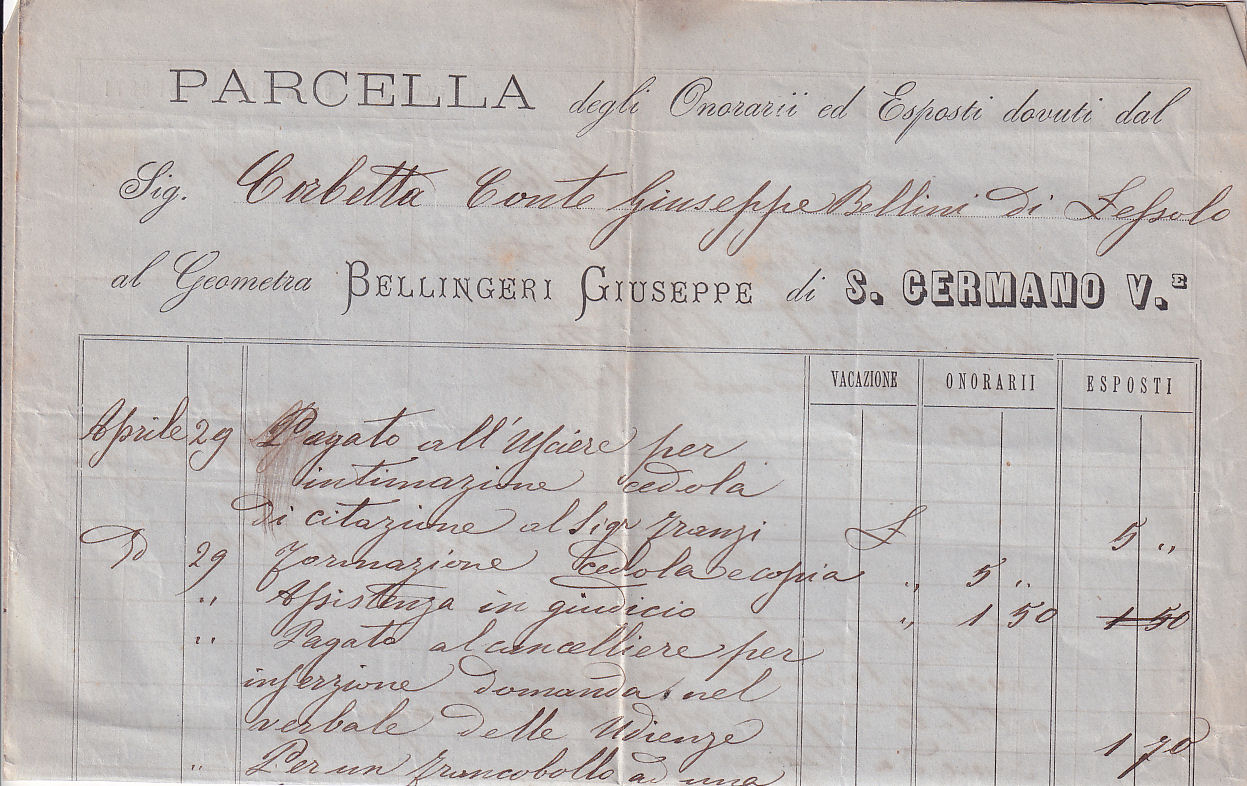 PARCELLA degli Onorarii ed Esposti dovuti dal
Sig. Corbetta Conte Giuseppe Bellini di Lessolo
al Geometra BELLINGERI GIUSEPPE di S. GERMANO V.E
VACAZIONE ONORARII ESPOSTI
Aprile 29 Pagato all'Usciere per
intimazione cedola
di citazione al Sigr Franzi £ 5 "
Do 29 Formazione cedola e copia " 5 "
" Assistenza in giudicio " 1 50 1 50
" Pagato al cancelliere per
inserzione domanda nel
verbale delle Udienze 1 70
" Per un francobollo ad una